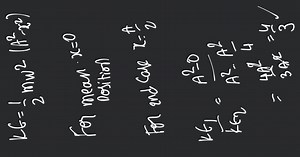 KE = 1/2 mw² (A²-x²)
For mean position x=0
For 2nd Case x = A/2
KE₁/KE₂ = A²-0 / A² - A²/4
= 4A²/3A² = 4/3 ✓